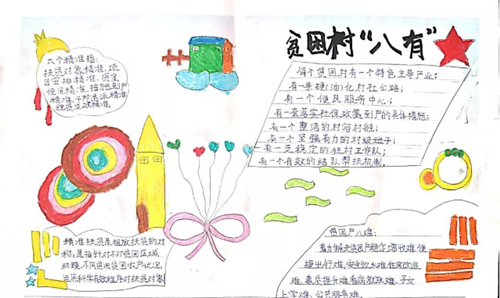 贫困村“八有”
六个精准指:
扶贫对象精准、项
目安排精准、资金
使用精准、措施到户
精准、因村派人精准
脱贫成效精准。
每个贫困村有一个特色主导产业;
有一条硬(油)化村社公路;
有一个便民服务中心;
有一套落实社保政策到户的具体措施;
有一个整洁的村容村貌;
有一个坚强有力的村级班子;
有一支稳定的驻村工作队;
有一个有效的结队帮扶机制。
精准扶贫是粗放扶贫的对
称,是指针对不同贫困区域
环境、不同贫困农户状况,
运用科学有效程序对扶贫对象
贫困户八难:
着力解决贫困户稳定增收难、便
捷出行难、安全饮水难、住房改造
难、素质提升难、看病就医难、子女
上学难、公共服务难。